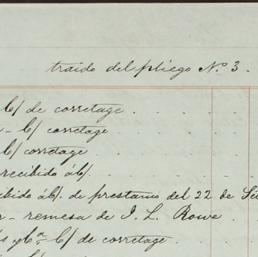 traido del pliego Nº 3.
c/ de corretage
- c/ corretage
c/ corretage
recibido á/c
cibido á/c. de prestamo del 22 de Se
r - remesa de J. L. Rowe
s y ba - c/ de corretage.